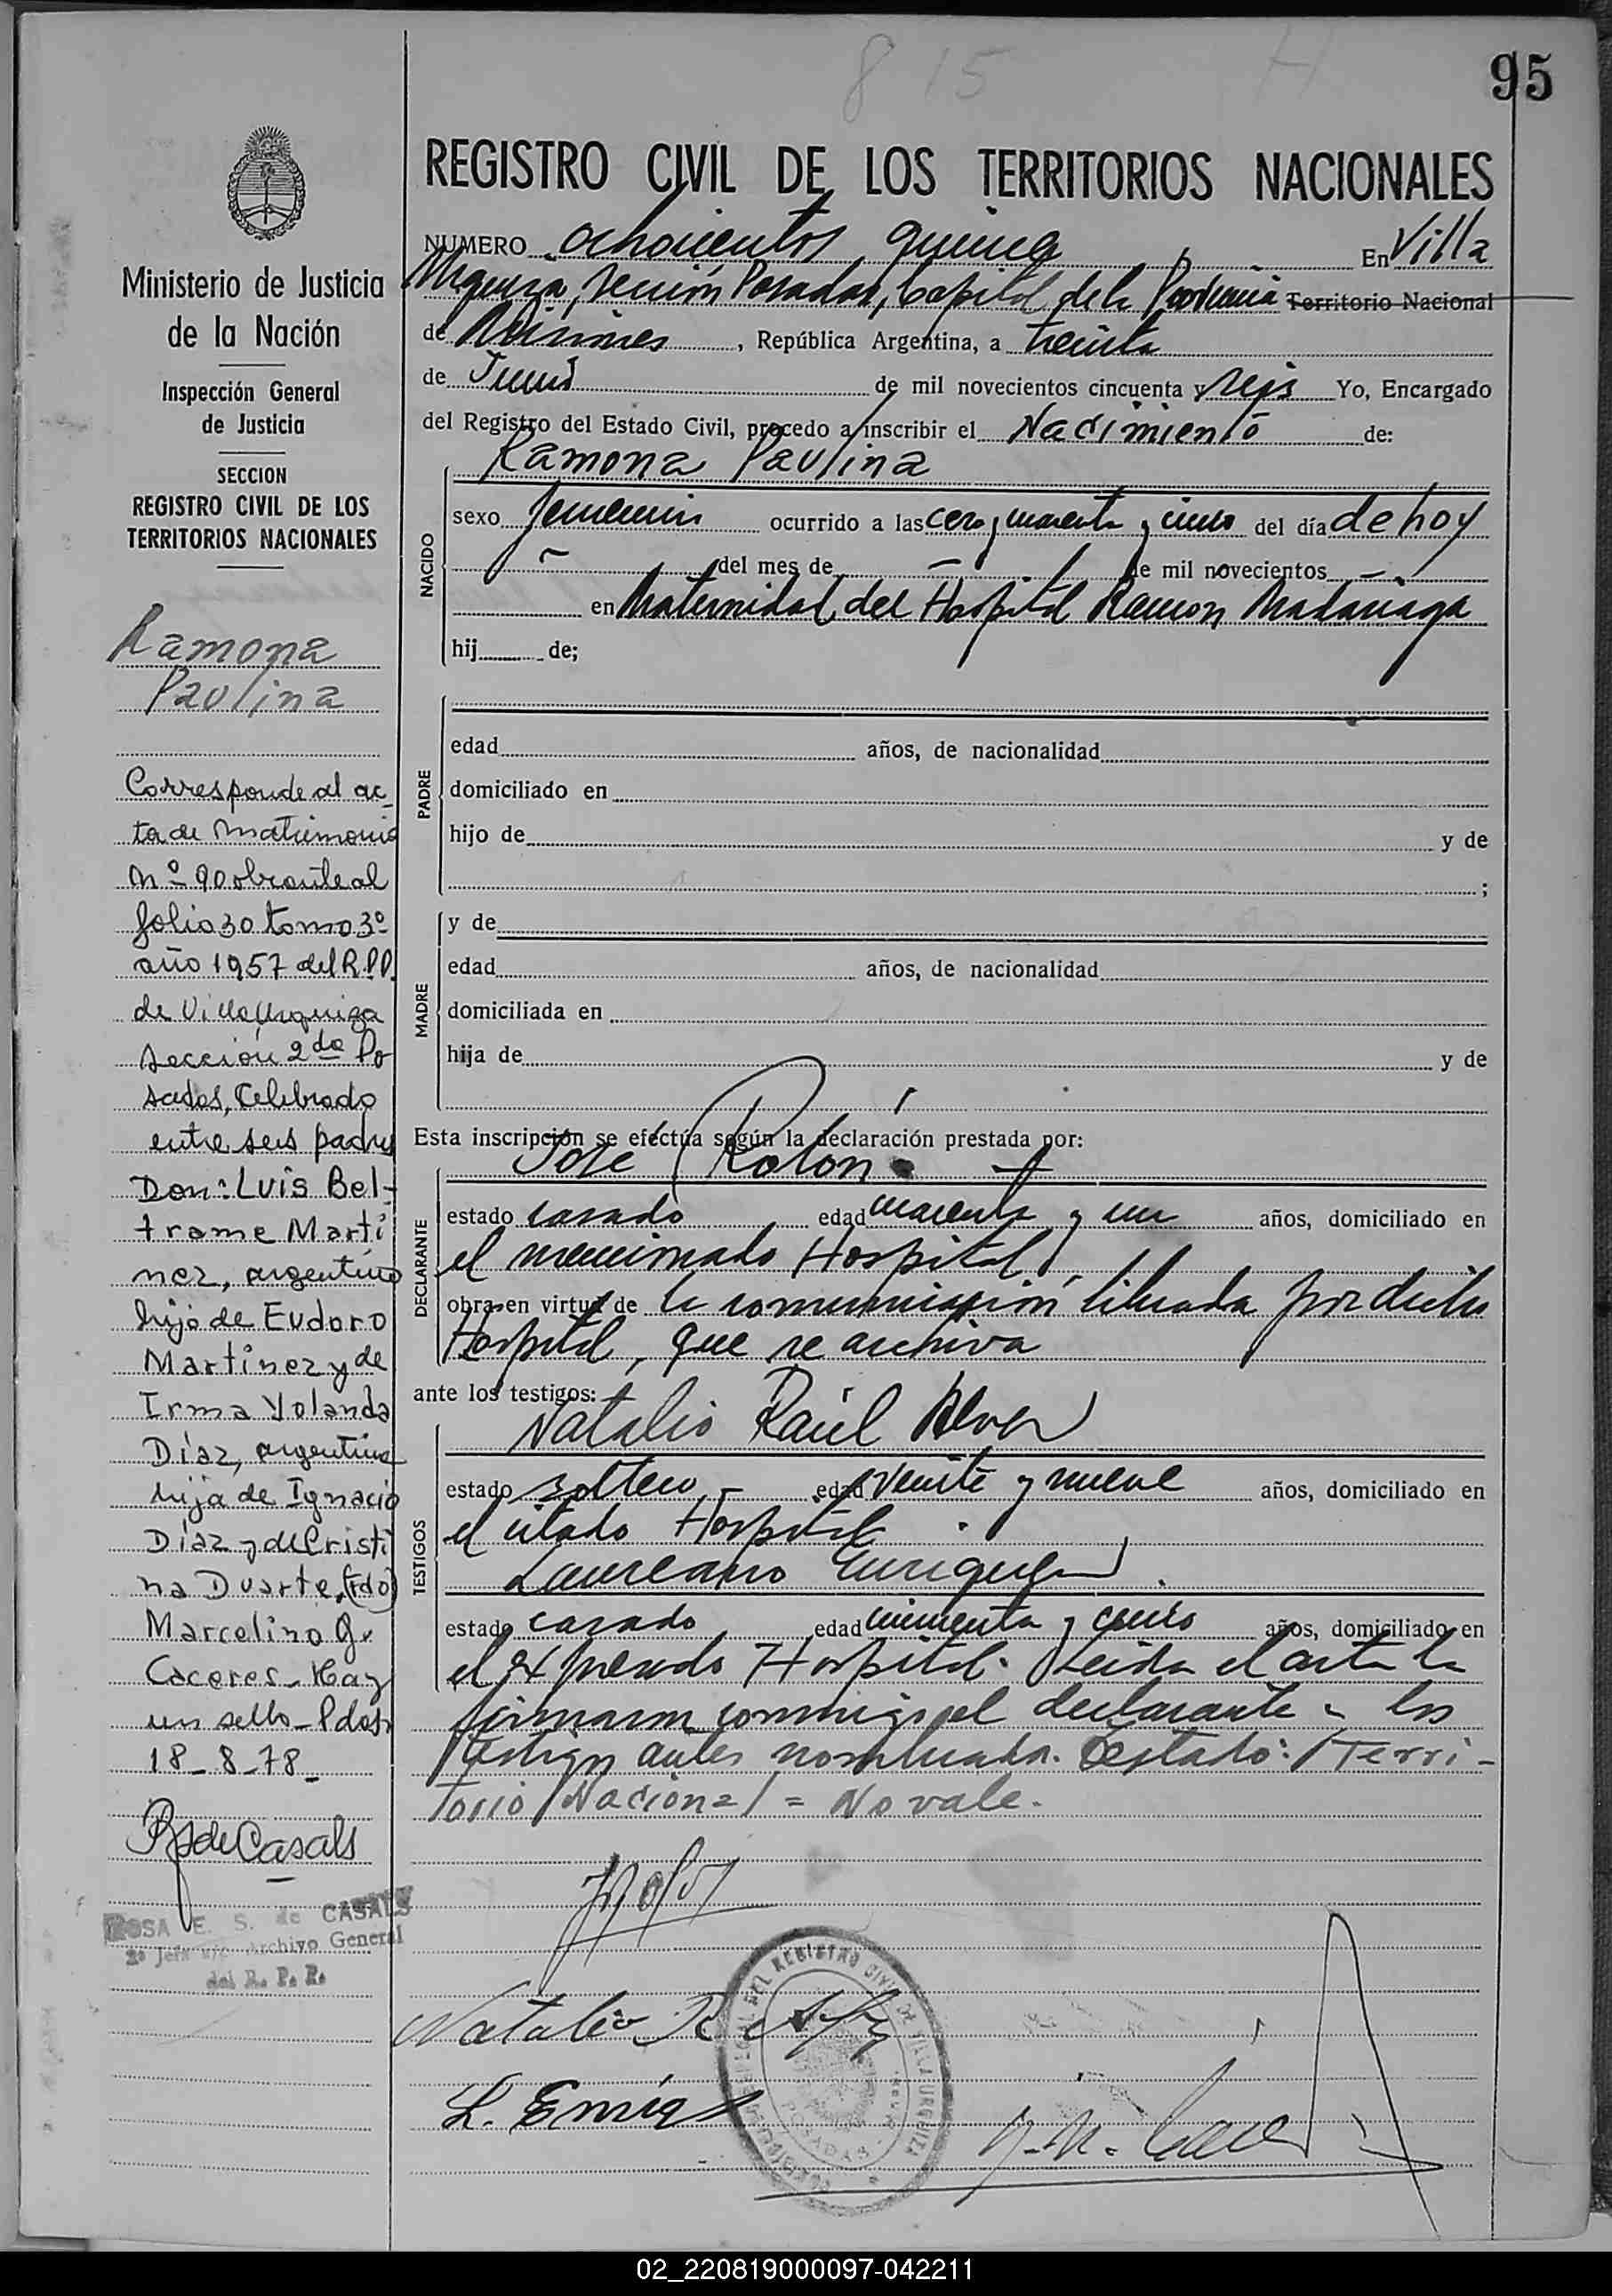 8 15 H
95
Ministerio de Justicia
de la Nación
Inspección General
de Justicia
SECCION
REGISTRO CIVIL DE LOS
TERRITORIOS NACIONALES
Ramona
Paulina
Corresponde al ac-
ta de Matrimonio
Nº 90 obrante al
folio 30 tomo 3º
año 1957 del R.P.P.
de Villa Urquiza
Sección 2da Po
sadas, Celebrado
entre sus padres
Don: Luis Bel-
trame Martí
nez, argentino
hijo de Eudoro
Martínez y de
Irma Yolanda
Díaz, argentina
hija de Ignacio
Díaz y de Cristi
na Duarte. (fdo)
Marcelino G.
Caceres - Hay
un sello - Pdas
18-8-78-
RSdeCasals
ROSA E. S. de CASALS
2º Jefe a/c Archivo General
del R. P. P.
REGISTRO CIVIL DE LOS TERRITORIOS NACIONALES
NUMERO ochocientos quince En Villa
Urquiza, Sección Posadas, Capital de la Provincia Territorio Nacional
de Misiones, República Argentina, a treinta
de Junio de mil novecientos cincuenta y seis Yo, Encargado
del Registro del Estado Civil, procedo a inscribir el Nacimiento de:
Ramona Paulina
NACIDO
sexo femenino ocurrido a las cero, cuarenta y cinco del día de hoy
del mes de de mil novecientos
en Maternidad del Hospital Ramon Madariaga
hij de;
PADRE
edad años, de nacionalidad
domiciliado en
hijo de y de
;
MADRE
y de
edad años, de nacionalidad
domiciliada en
hija de y de
Esta inscripción se efectúa según la declaración prestada por:
José Rolón
DECLARANTE
estado casado edad cuarenta y un años, domiciliado en
el mencionado Hospital,
obra en virtud de la comunicación librada por dicho
Hospital, que se archiva
ante los testigos:
Natalio Raúl
TESTIGOS
estado soltero edad veinte y nueve años, domiciliado en
el citado Hospital
Laureano Enriquez
estado casado edad cincuenta y cinco años, domiciliado en
el expresado Hospital. Leída el acta la
firmaron conmigo el declarante y los
testigos antes nombrados. Testado: /Terri-
torio Nacional/ = No vale.
Natalio R.
L. Enriq
REGISTRO CIVIL DE VILLA URQUIZA
POSADAS
02_220819000097-042211